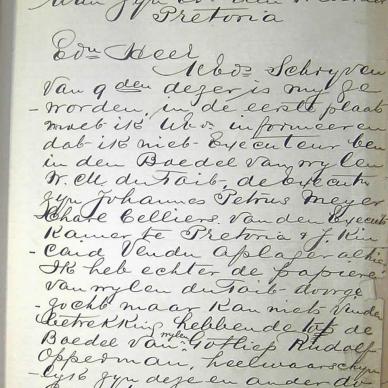 Pretoria
Edn Heer
UEds Schryven
van 9 den dezer is my ge
- worden, in de eerste plaats
moet ik UEd. informeeren
dat ik niet Executeur ben
in den Boedel van wylen
du Toit, de Executr
zyn Johannes Petrus Meyer
Celliers van den Executr
Kamer te Pretoria & J. Kin
- caid Vendu aflager alhier
Ik heb echter de papieren
van wylen du Toit doorge
- zocht maar kan niets vinden
betrekking hebbende op de
Boedel van wylen Gotliep Rudolf
Opperman, heelwaarschyn
- lyk zyn deze en andere